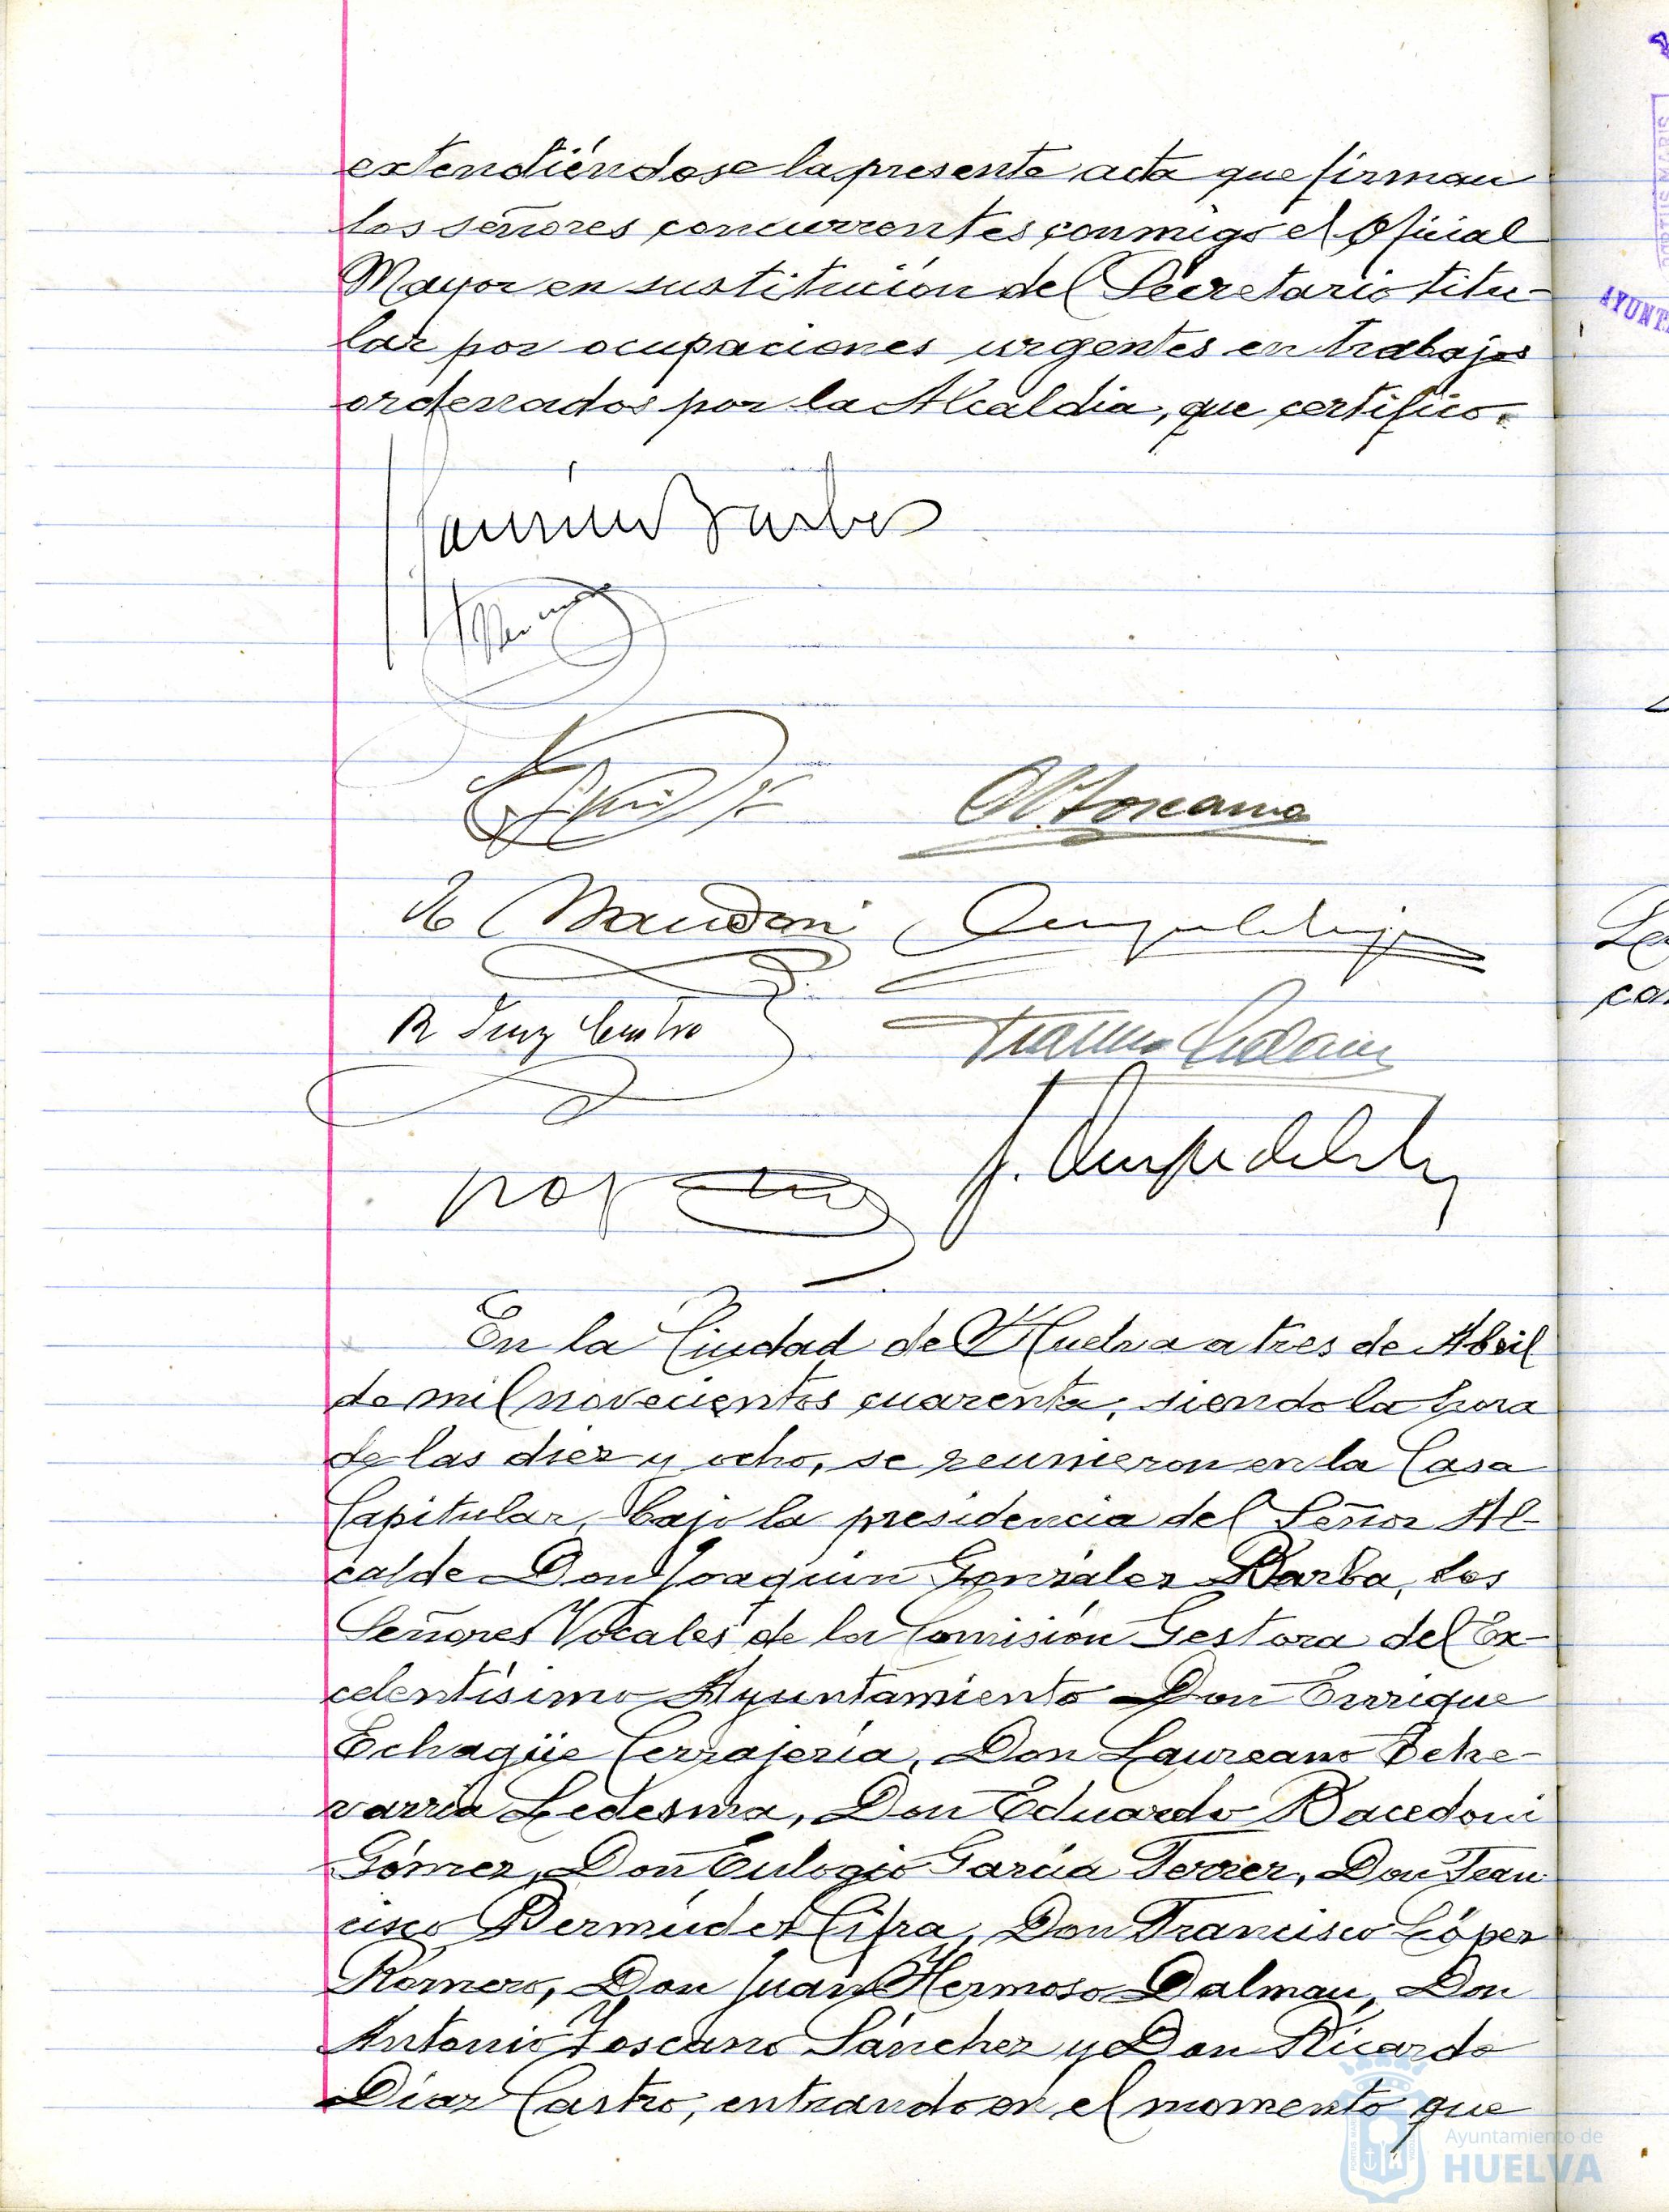 extendiéndose la presente acta que firman
los señores concurrentes conmigo el Oficial
Mayor en sustitución del Secretario titu-
lar por ocupaciones urgentes en trabajos
ordenados por la Alcaldia, que certifico.
Joaquín Barba
A Toscano
R Diaz Castro
En la Ciudad de Huelva a tres de Abril
de mil novecientos cuarenta, siendo la hora
de las diez y ocho, se reunieron en la Casa
Capitular, bajo la presidencia del Señor Al-
calde Don Joaquin González Barba, los
Señores Vocales de la Comisión Gestora del Ex-
celentísimo Ayuntamiento Don Enrique
Echagüe Cerrajería, Don Laureano Eche-
varría Ledesma, Don Eduardo Bacedoni
Gómez, Don Eulogio García Ferrer, Don Fran
cisco Bermúdez Cifra, Don Francisco López
Romero, Don Juan Hermoso Dalmau, Don
Antonio Toscano Sánchez y Don Ricardo
Díaz Castro, entrando en el momento que
AYUNT
Ayuntamiento de
HUELVA